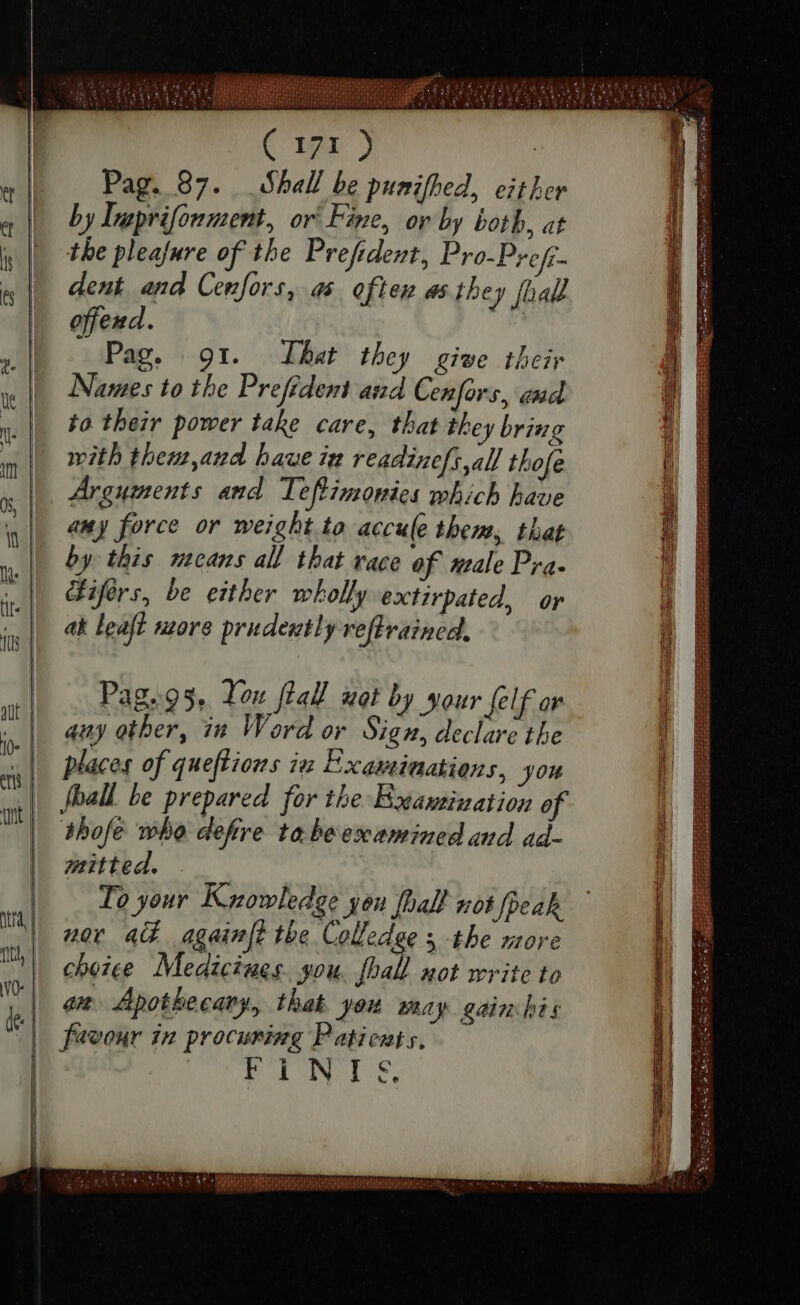 ( 171 )
Pag. 87. Shall be puniſhed, either
by Impriſonment, or Fine, or by both, at
the pleaſure of the Preſident, Pro-Preſi-
dent and Cenſors, as often as they ſhall
offend.
Pag. 91. That they give their
Names to the Preſident and Cenſors, and
to their power take care, that they bring
with them, and have in readineſs, all thoſe
Arguments and Teſtimonies which have
any force or weight to accuſe them, that
by this means all that race of male Pra-
ctiſers, be either wholly extirpated, or
at leaſt more prudently reſtrained.
Pag. 93. You ſhall not by your ſelf or
any other, in Word or Sign, declare the
places of queſtions in Examinations, you
ſhall be prepared for the Examination of
thoſe who deſire to be examined and ad-
mitted.
To your Knowledge you ſhall not ſpeak
nor act againſt the Colledge; the more
choice Medicines you ſhall not write to
an Apothecary, that you may gain his
favour in procuring Patients.
FINIS.